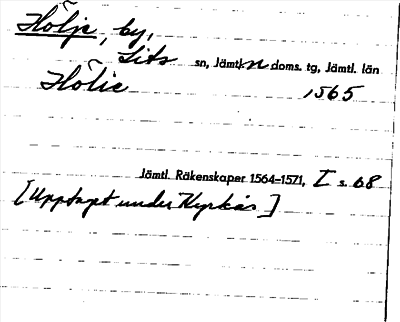 Hölje, by,
Lits sn, Jämtl. n doms. tg, Jämtl. län
Hölie 1565
Jämtl. Räkenskaper 1564–1571, I s. 68
[Upptaget under Kyrkås]